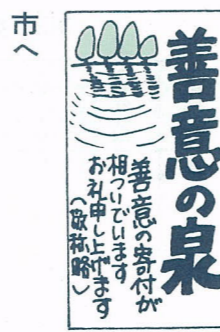 善意の泉
善意の寄付が
相ついでいます
お礼申し上げます
（敬称略）
市へ